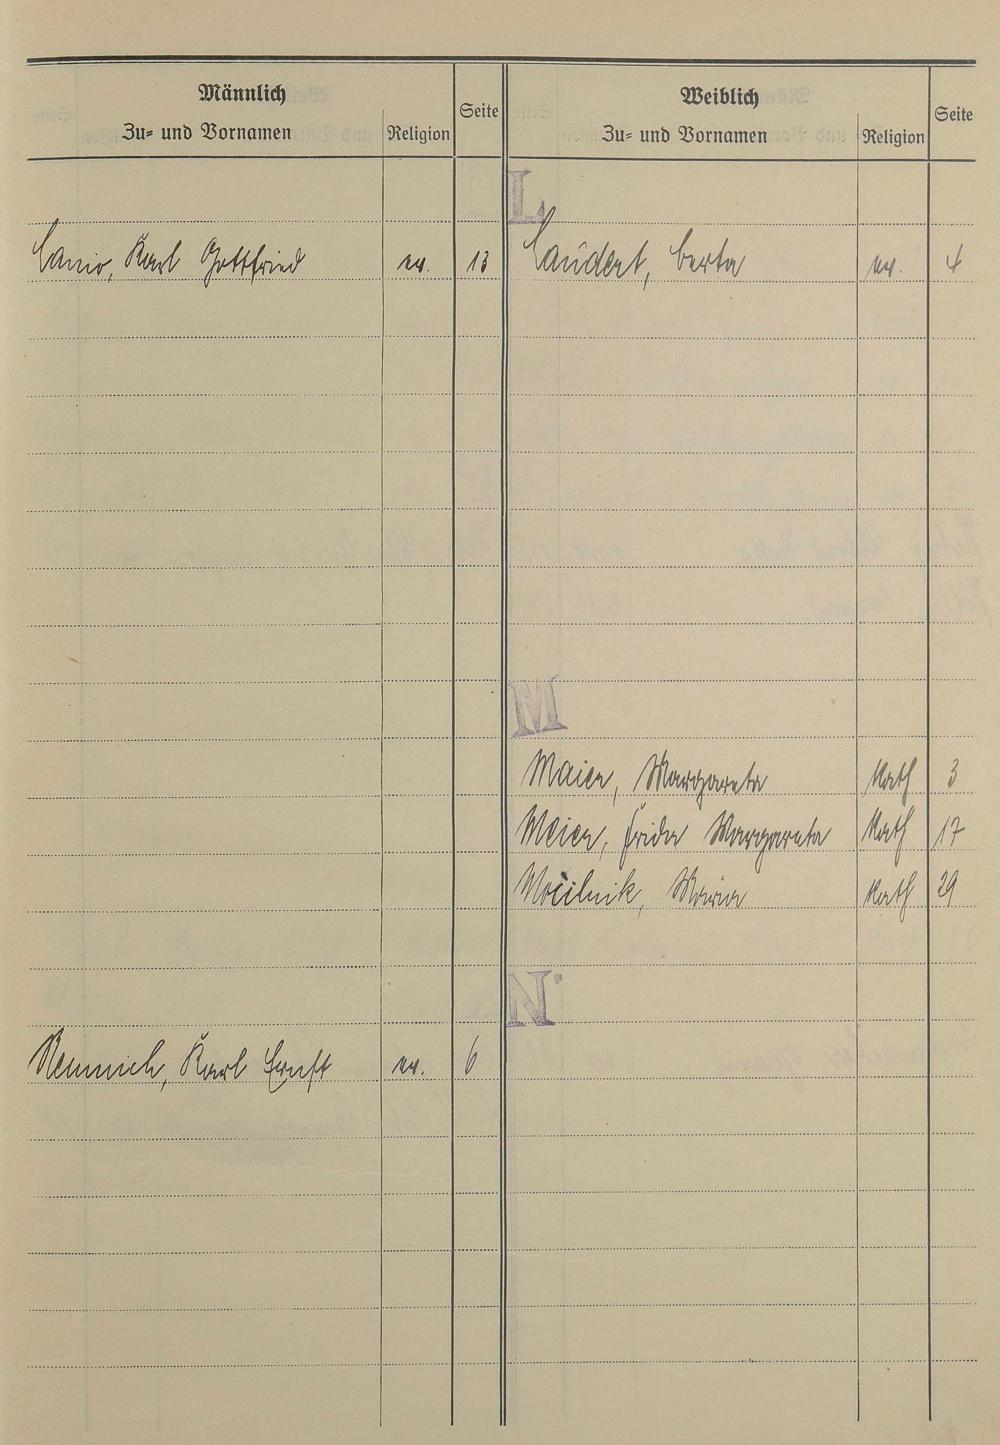 Männlich
Zu= und Vornamen
Religion
Seite
Weiblich
Zu= und Vornamen
Religion
Seite
L
Lanio, Karl Gottfried ev. 13
Laudert, Berta ev. 4
M
Maier, Margareta Kath 3
Meier, Frida Margareta Kath 17
Mocilnik, Maria Kath 29
N
Nemnich, Karl Ernst ev. 6